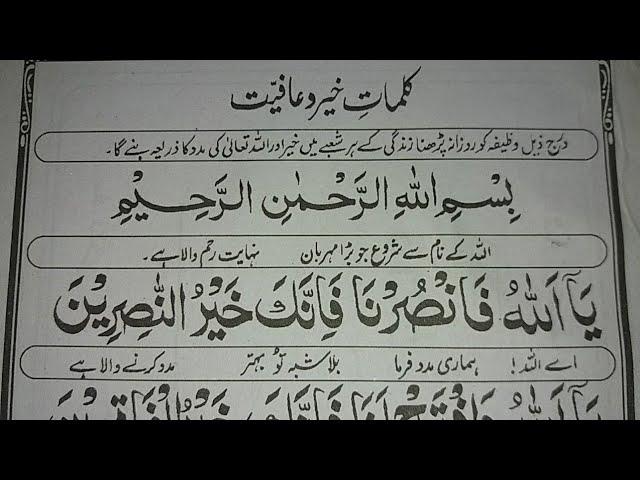 کلماتِ خیر و عافیّت
درج ذیل وظیفہ کو روزانہ پڑھنا زندگی کے ہر شعبے میں خیر اور اللہ تعالیٰ کی مدد کا ذریعہ بنے گا۔
بِسْمِ اللهِ الرَّحْمٰنِ الرَّحِيْمِ
اللہ کے نام سے شروع جو بڑا مہربان نہایت رحم والا ہے۔
يَآ اَللهُ فَانْصُرْنَا فَاِنَّكَ خَيْرُ النّٰصِرِيْنَ
اے اللہ! ہماری مدد فرما بلاشبہ تُو بہتر مدد کرنے والا ہے
يَآ اَللهُ وَافْتَحْ لَنَا فَاِنَّكَ خَيْرُ الْفَاتِحِيْنَ